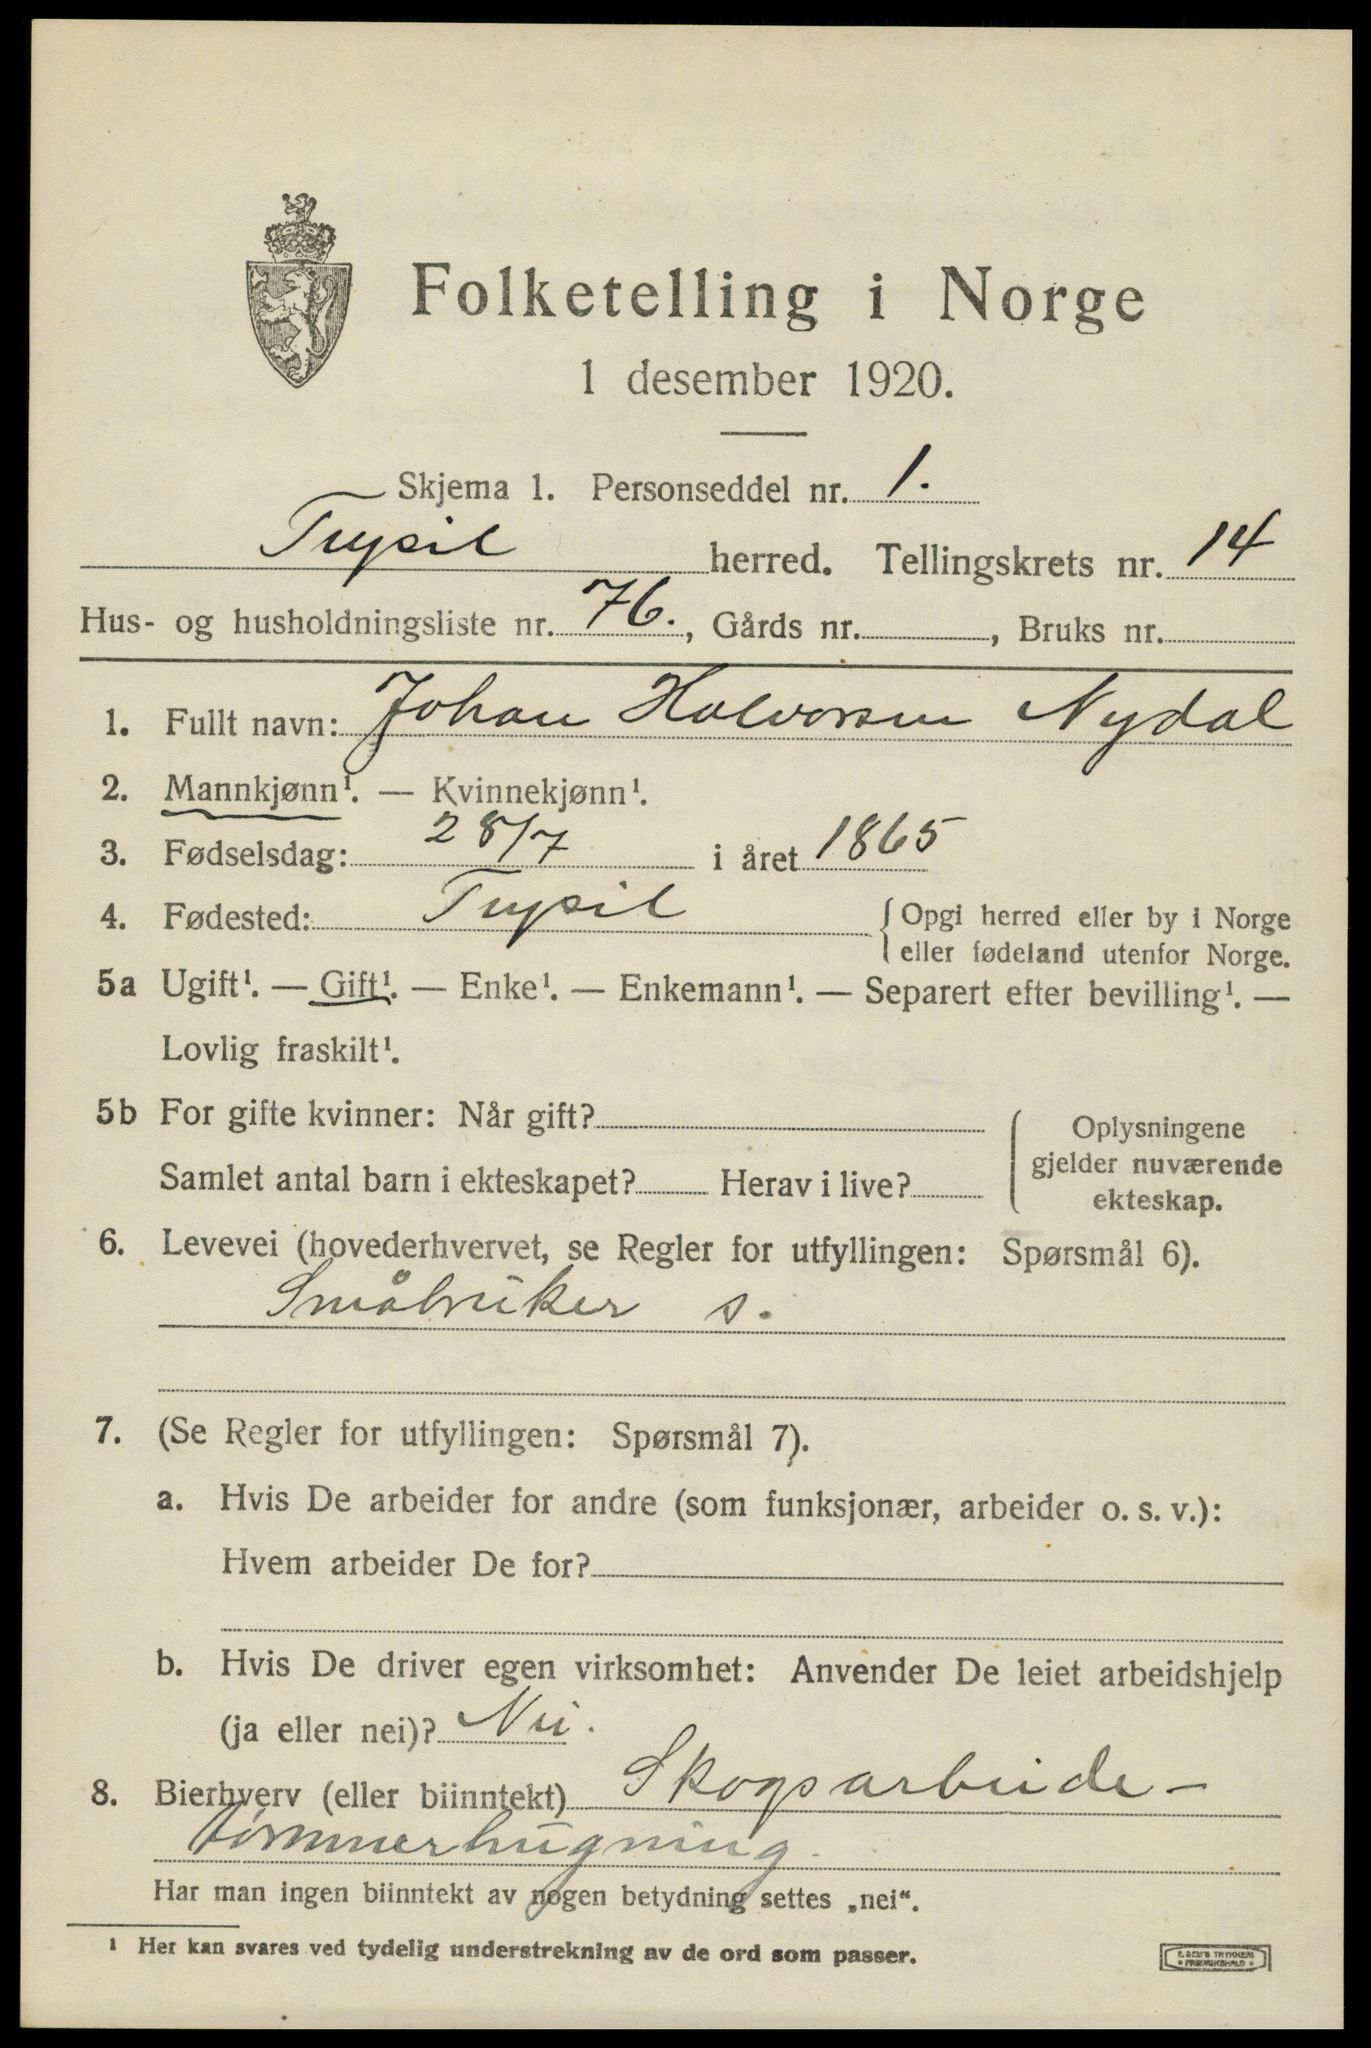 Folketelling i Norge
1 desember 1920.
Skjema 1. Personseddel nr. 1.
Trysil herred. Tellingskrets nr. 14
Hus- og husholdningsliste nr. 76., Gårds nr. , Bruks nr.
1. Fullt navn: Johan Halvorsen Nydal
2. Mannkjønn¹. — Kvinnekjønn¹.
3. Fødselsdag: 28/7 i året 1865
4. Fødested: Trysil { Opgi herred eller by i Norge
eller fødeland utenfor Norge.
5a Ugift¹. — Gift¹. — Enke¹. — Enkemann¹. — Separert efter bevilling¹. —
Lovlig fraskilt¹.
5b For gifte kvinner: Når gift?
Samlet antal barn i ekteskapet? Herav i live?
Oplysningene
gjelder nuværende
ekteskap.
6. Levevei (hovederhvervet, se Regler for utfyllingen: Spørsmål 6).
Småbruker s.
7. (Se Regler for utfyllingen: Spørsmål 7).
a. Hvis De arbeider for andre (som funksjonær, arbeider o. s. v.):
Hvem arbeider De for?
b. Hvis De driver egen virksomhet: Anvender De leiet arbeidshjelp
(ja eller nei)? Nei.
8. Bierhverv (eller biinntekt) Skogsarbeide -
tømmerhugning.
Har man ingen biinntekt av nogen betydning settes „nei“.
¹ Her kan svares ved tydelig understrekning av de ord som passer.
E. SEM'S TRYKKERI
• FREDRIKSHALD •